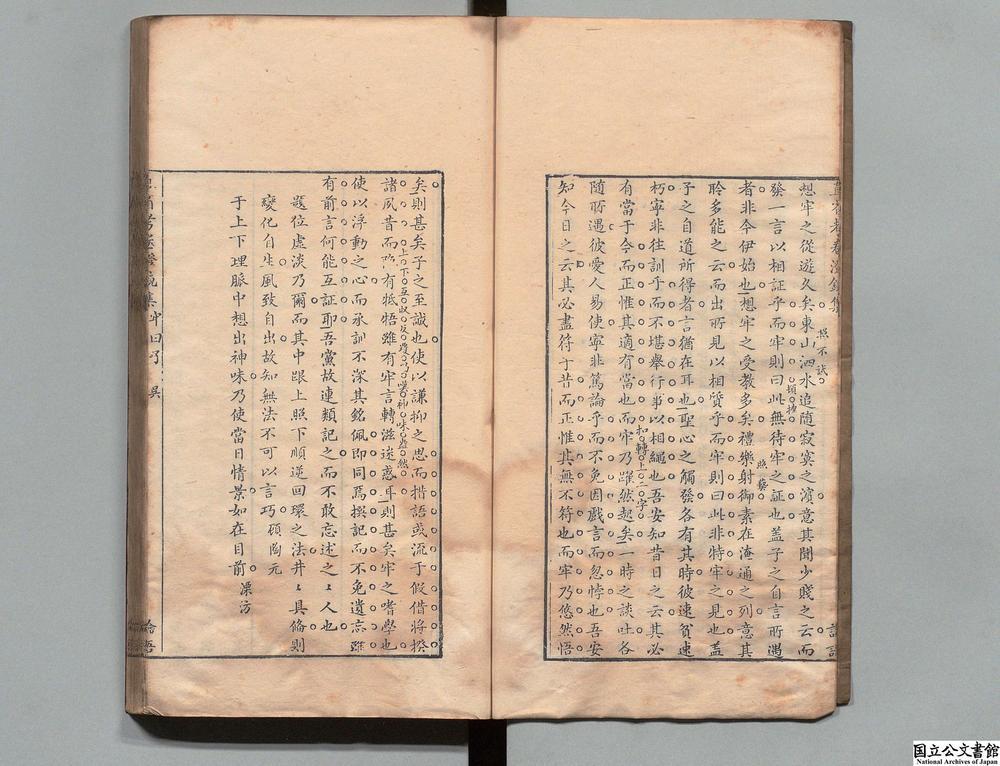 想牢之從遊久矣東山泗水追隨寂寞之濱意其聞少賤之云而
發一言以相証乎而牢則曰此無待牢之証也蓋子之自言所遇
者非今伊始也想牢之受教多矣禮樂射御素在淹通之列意其
聆多能之云而出所見以相質乎而牢則曰此非特牢之見也蓋
子之自道所得者言猶在耳也聖心之觸發各有其時彼速貧速
朽寧非往訓乎而不堪舉行事以相繩也吾安知昔日之云其必
有當于今而正惟其適有當也而牢乃躍然起矣一時之談吐各
隨所遇彼愛人易使寧非篤論乎而不免因戲言而忽悖也吾安
知今日之云其必盡符于昔而正惟其無不符也而牢乃悠然悟
照不試
照藝
扣轉上二字
矣則甚矣子之至誠也使以謙抑之思而措語或流于假借將揆
諸夙昔而所有牴牾雖有牢言轉滋迷惑耳則甚矣牢之嗜學也
使以浮動之心而承訓不深其銘佩即同焉撰記而不免遺忘雖
有前言何能互証耶吾黨故連類記之而不敢忘述之之人也
題位虛淡乃爾而其中眼上照下順逆回環之法井井具偹則
變化自生風致自出故知無法不可以言巧碩陶元
于上下理脈中想出神味乃使當日情景如在目前
論語
國立公文書館
National Archives of Japan